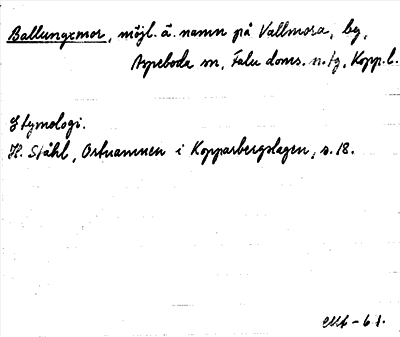 Ballungxmor, möjl. ä. namn på Vallmora, by,
Aspeboda sn, Falu doms. n. tg, Kopp. l.
Etymologi.
H. Ståhl, Ortnamnen i Kopparbergslagen, s. 18.